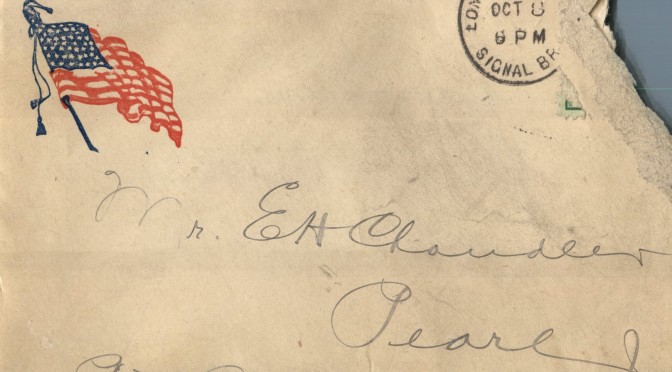 OCT 8
6 PM
SIGNAL BR
Mr. E H Chandler
Pearl